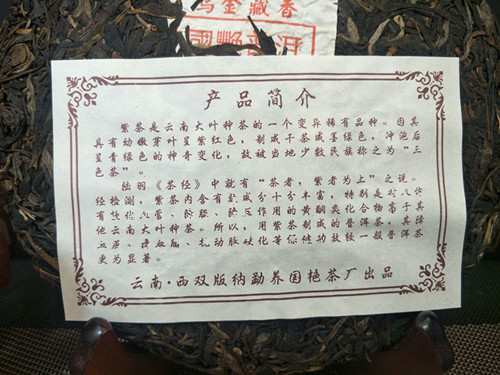 香藏金鸟
产品简介
紫茶是云南大叶种茶的一个变异稀有品种。因其
具有幼嫩芽叶呈紫红色，制成干茶成墨绿色，冲泡后
呈青绿色的神奇变化，故被当地少数民族称之为“三
色茶”。
陆羽《茶经》中就有“茶者，紫者为上”之说。
经检测，紫茶内含有益成分十分丰富，特别是对人体
有软化血管、降脂、降压作用的黄酮类化合物高于其
他云南大叶种茶。所以，用紫茶制成的普洱茶，其降
血脂、动脉硬化等保健功效较一般普洱茶
更为显著。
云南·西双版纳勐养国艳茶厂出品